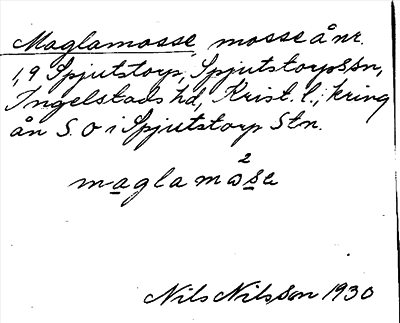 Maglamosse, mosse å nr.
1,9 Spjutstorp, Spjutstorps sn,
Ingelstads hd, Krist. l.; kring
ån S.O i Spjutstorp Stn.
maglamo²se
Nils Nilsson 1930